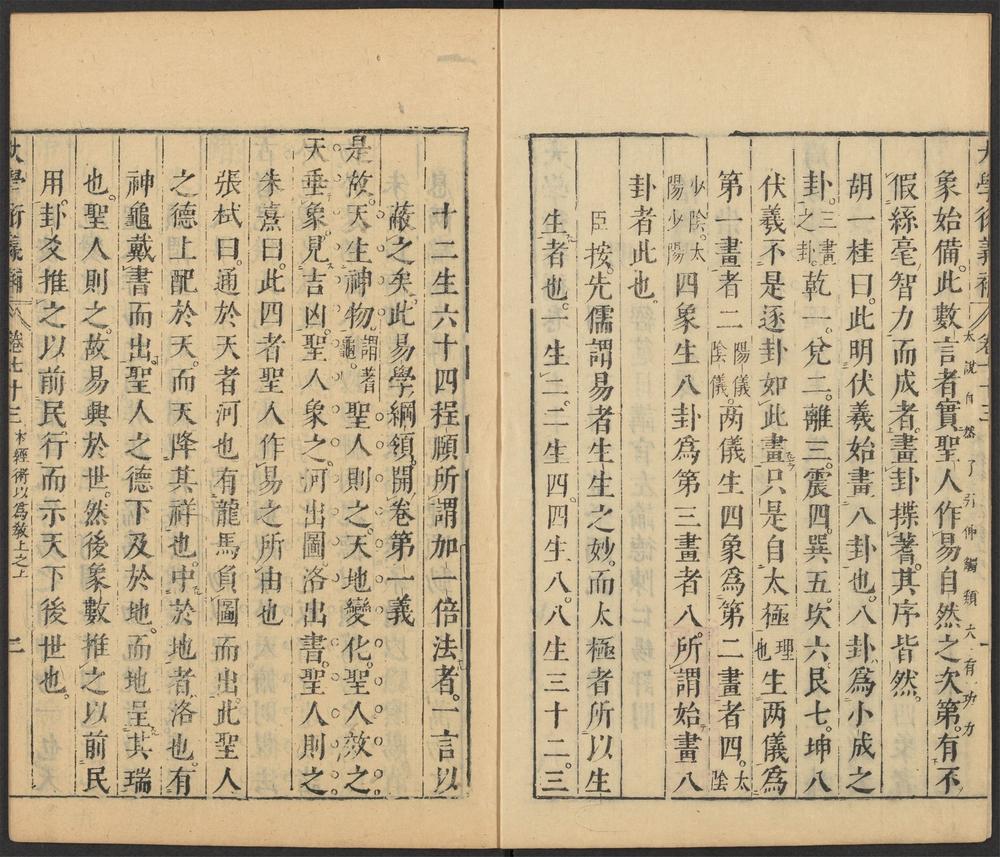 大學衍義補 卷七十三 一
象始備此數言者實聖人作易自然之次第有不
太說自然了引伸觸類大有功力
假絲毫智力而成者畫卦揲蓍其序皆然
胡一桂曰此明伏羲始畫八卦也八卦爲小成之
卦三畫之卦乾一兌二離三震四巽五坎六艮七坤八
伏羲不是逐卦如此畫只是自太極理也生两儀爲
第一畫者二陽儀陰儀两儀生四象爲第二畫者四太陰
少陰太陽少陽四象生八卦爲第三畫者八所謂始畫八
卦者此也
臣按先儒謂易者生生之妙而太極者所以生
生者也一生二二生四四生八八生三十二三
十二生六十四程頤所謂加一倍法者一言以
蔽之矣此易學綱領開卷第一義
是故天生神物謂蓍龜聖人則之天地變化聖人效之
天垂象見吉凶聖人象之河出圖洛出書聖人則之
朱熹曰此四者聖人作易之所由也
張栻曰通於天者河也有龍馬負圖而出此聖人
之德上配於天而天降其祥也中於地者洛也有
神龜戴書而出聖人之德下及於地而地呈其瑞
也聖人則之故易興於世然後象數推之以前民
用卦爻推之以前民行而示天下後世也
大學衍義補 卷七十三 本經術以爲教上之上 二